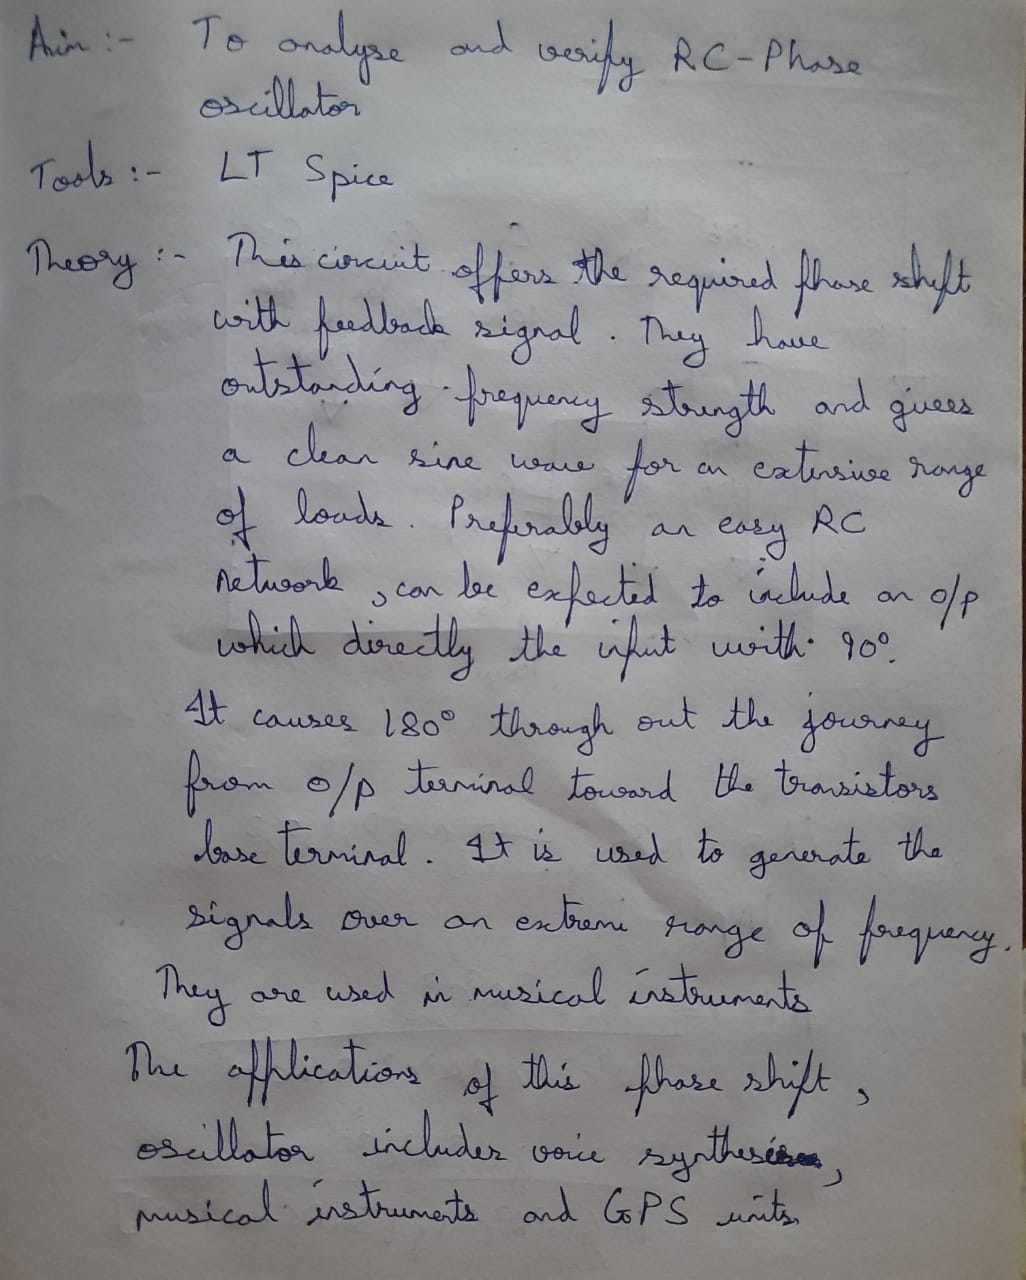 Aim :- To analyse and verify RC-Phase
oscillator
Tools :- LT Spice
Theory :- This circuit offers the required phase shift
with feedback signal. They have
outstanding frequency strength and gives
a clean sine wave for an extensive range
of loads. Preferably an easy RC
network, can be expected to include an o/p
which directly the input with 90°.
It causes 180° through out the journey
from o/p terminal toward the transistors
base terminal. It is used to generate the
signals over an extreme range of frequency.
They are used in musical instruments
The applications of this phase shift,
oscillator includes voice synthesis,
musical instruments and GPS units.